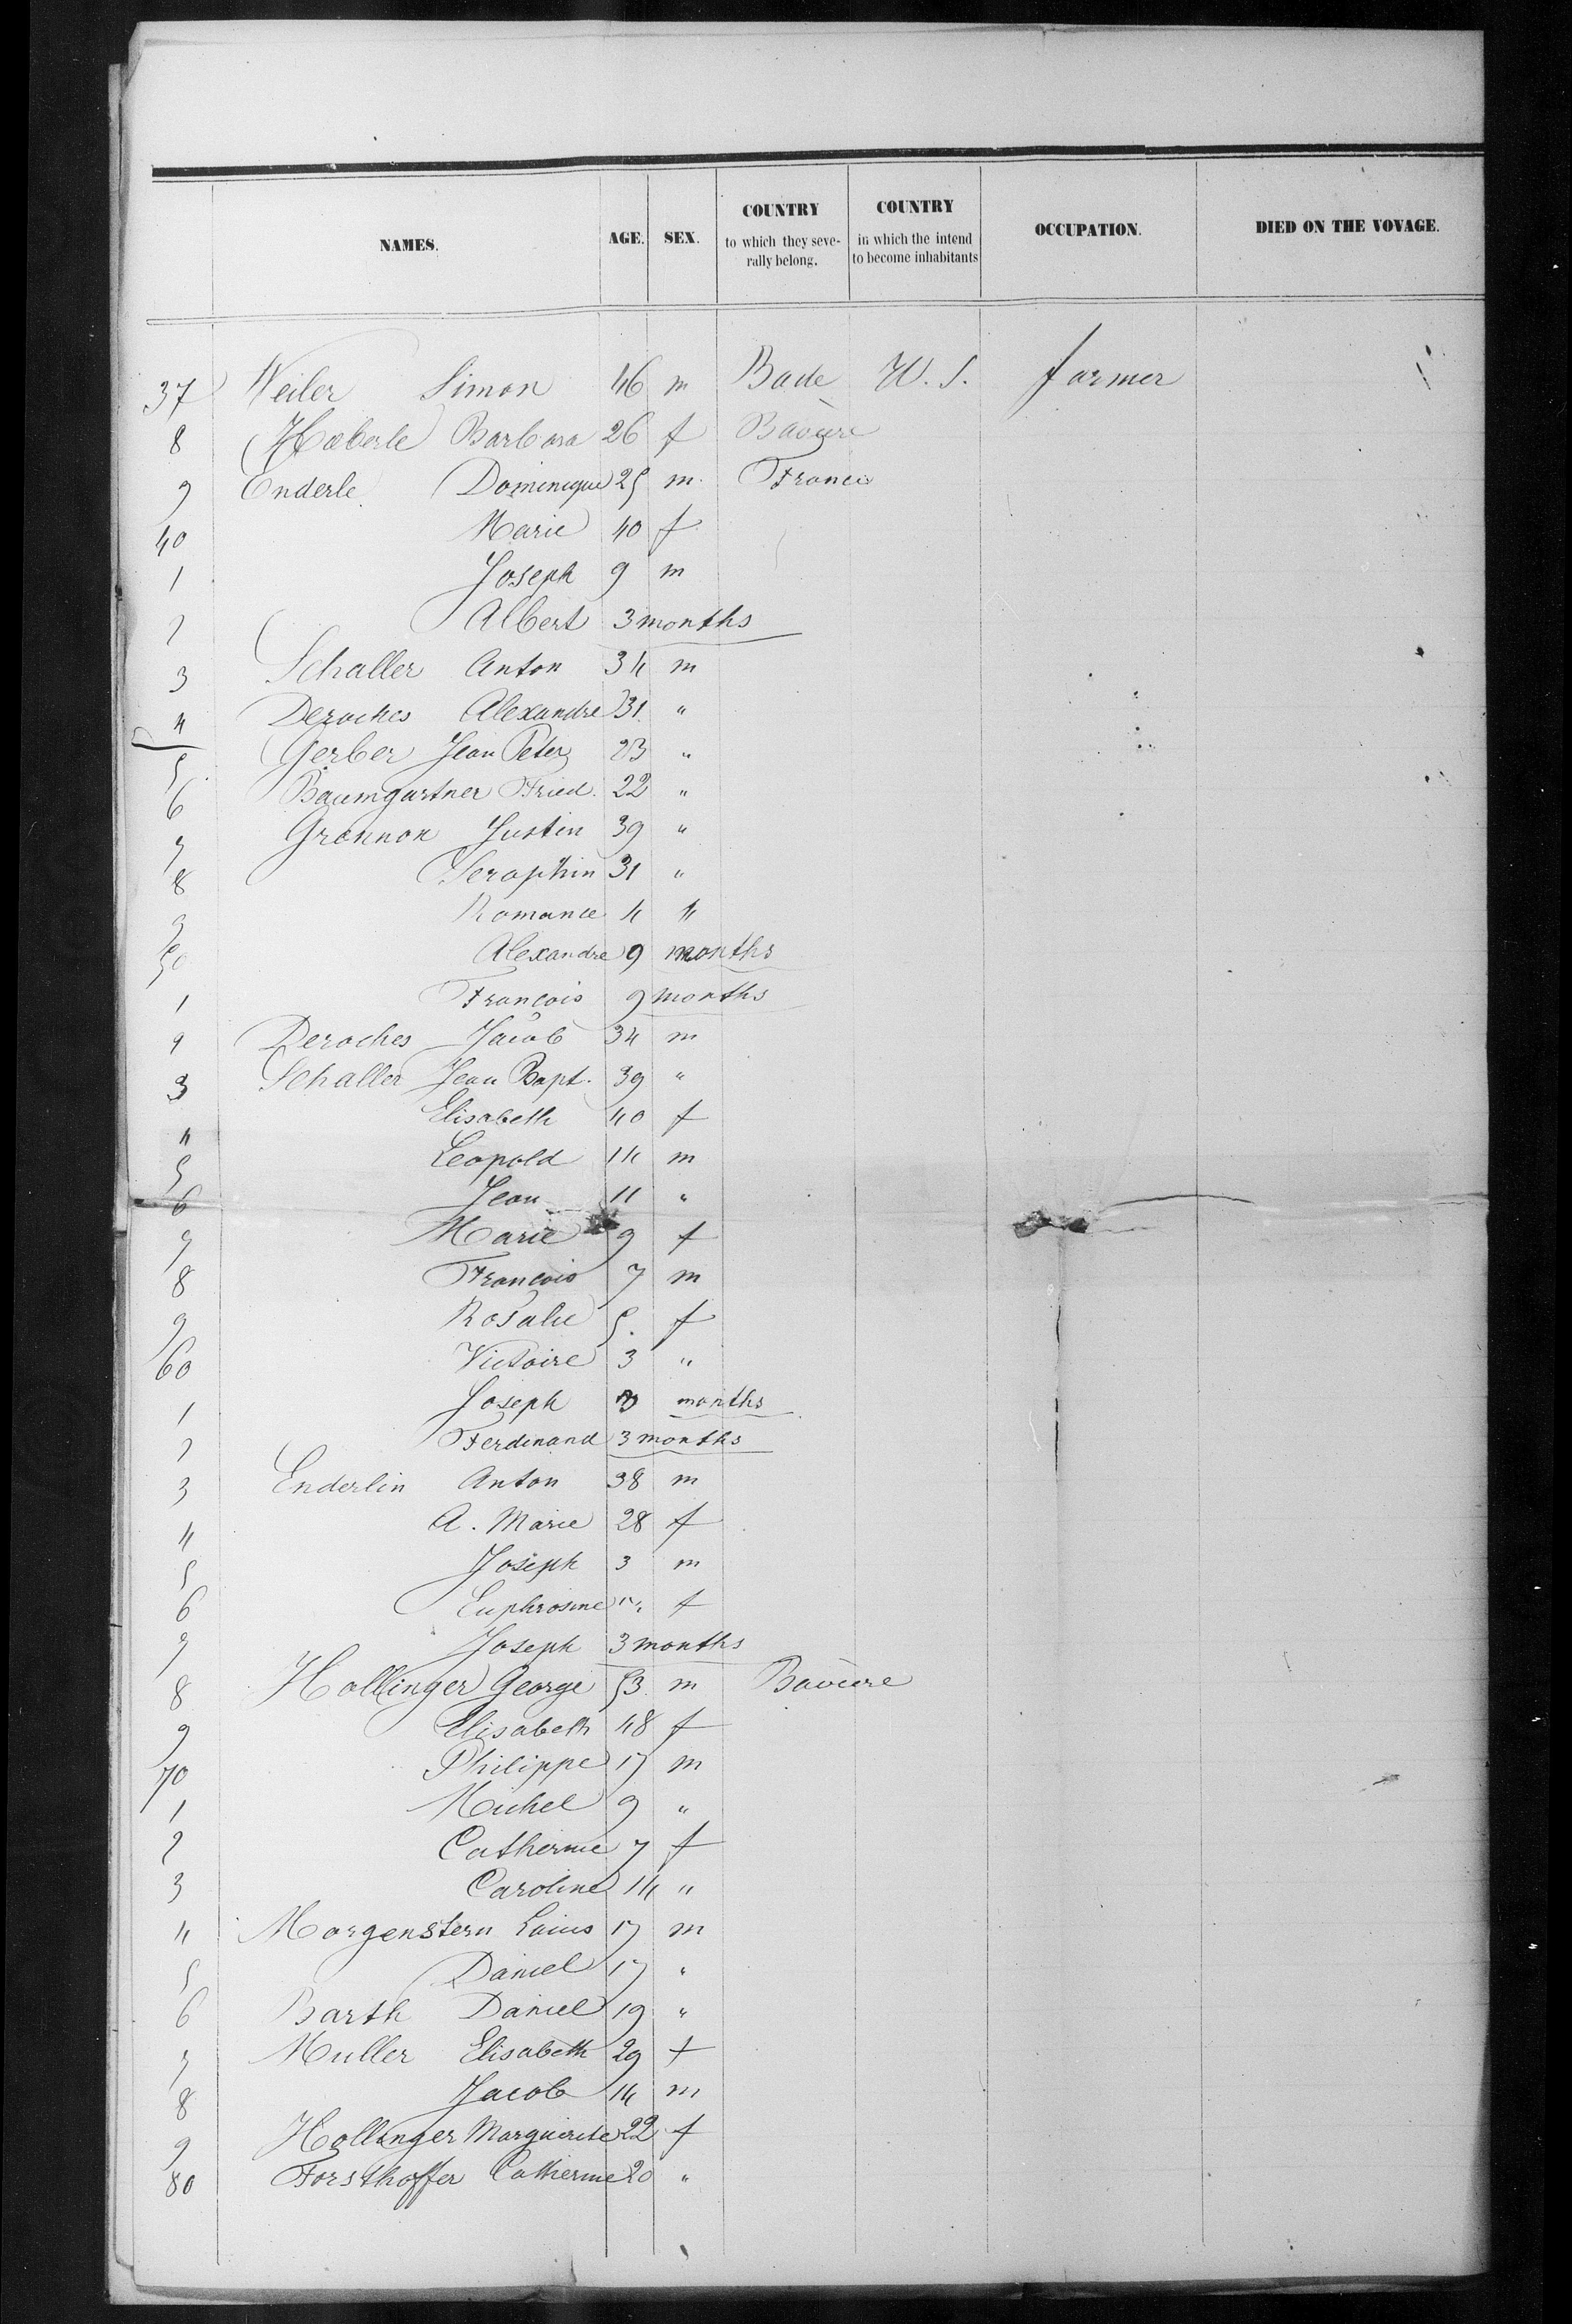 NAMES. AGE. SEX. COUNTRY to which they severally belong. COUNTRY in which the intend to become inhabitants OCCUPATION. DIED ON THE VOYAGE.
37 Weiler Simon 46 m Bade U. S. farmer
8 Haberle Barbara 26 f Bavière
9 Enderle Dominique 25 m. France
40 Marie 40 f
1 Joseph 9 m
2 Albert 3 months
3 Schaller Anton 34 m
4 Deroches Alexandre 31 "
5 Gerber Jean Peter 23 "
6 Baumgartner Fried. 22 "
7 Gronnon Justin 39 "
8 Seraphin 31 "
9 Romance 4 "
50 Alexandre 9 months
1 François 9 months
2 Deroches Jacob 34 m
3 Schaller Jean Bapt. 39 "
4 Elisabeth 40 f
5 Leopold 14 m
6 Jean 11 "
7 Marie 9 f
8 François 7 m
9 Rosalie 5. f
60 Victoire 3 "
1 Joseph months
2 Ferdinand 3 months
3 Enderlin Anton 38 m
4 A. Marie 28 f
5 Joseph 3 m
6 Euphrosine f
7 Joseph 3 months
8 Hollinger George 53 m Bavière
9 Elisabeth 48 f
70 Philippe 17 m
1 Michel 9 "
2 Catherine 7 f
3 Caroline 14 "
4 Morgenstern Louis 17 m
5 Daniel 17 "
6 Barth Daniel 19 "
7 Muller Elisabeth 29 f
8 Jacob 14 m
9 Hollinger Marguerite 22 f
80 Forsthoffer Catherine 20 "